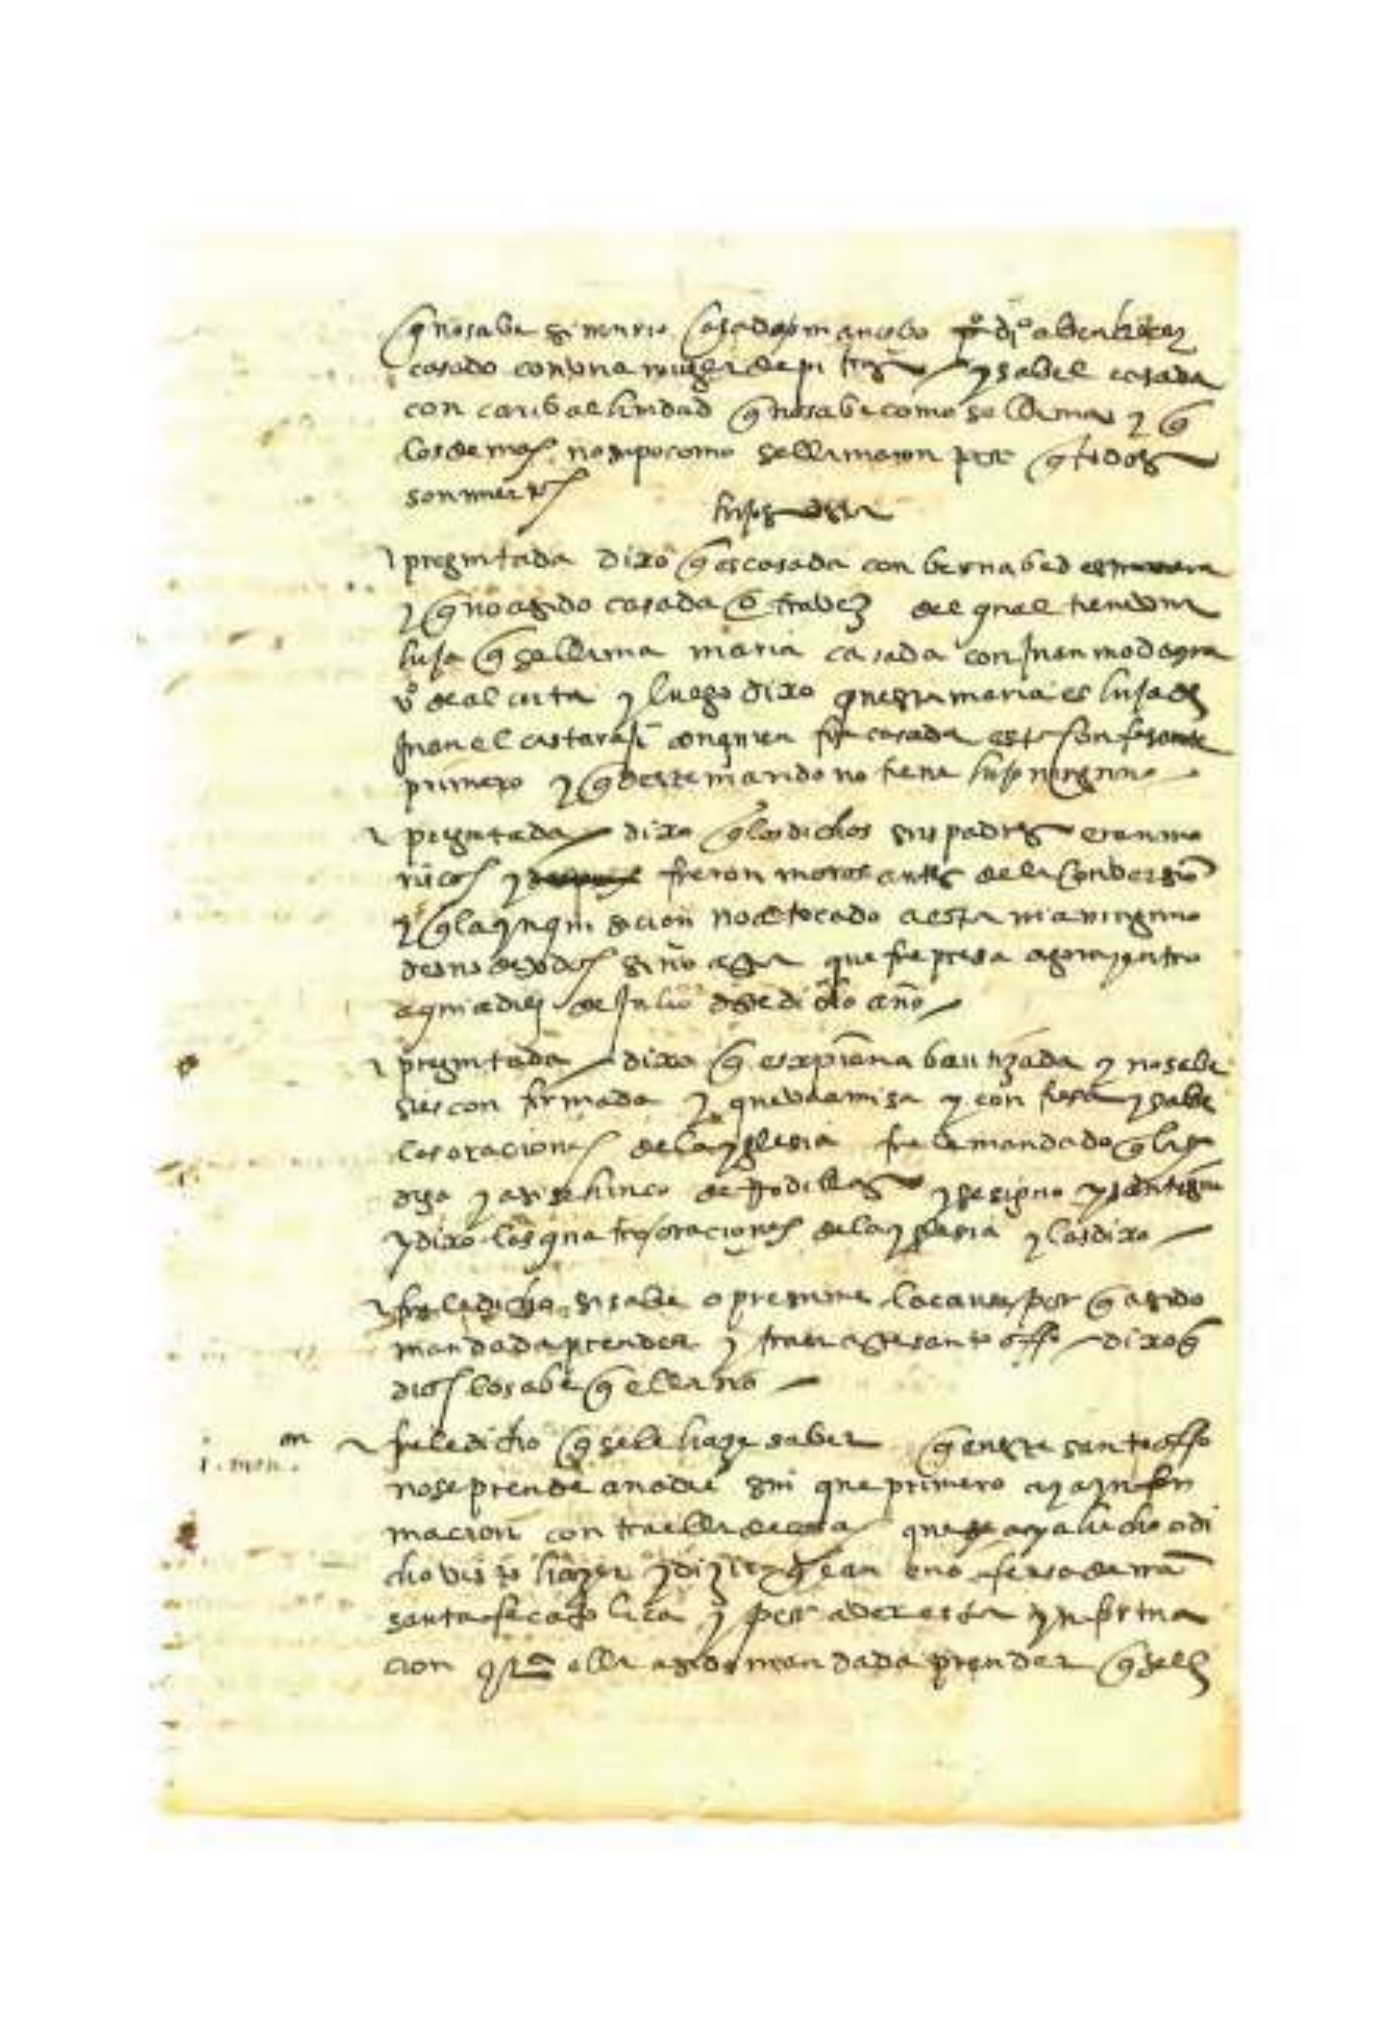 q no sabe si murio casado o mancebo di° aben
casado con una muger de ysabel casada
con q no sabe como se llama y q
los demas no supo como se llamaron porq todos
son muertos
hijos desta
preguntada dixo q es casada con bernabe de
y q no a sido casada otra vez del qual tiene una
hija q se llama maria casada con Juan
v° de y luego dixo questa maria es hija de
Juan el con quien fue casada esta confesante
primero y q deste marido no tiene hijo ninguno
preguntada dixo q los dichos sus padres eran mo
riscos y fueron moros antes de la conversion
y q la ynquisicion no a tocado a esta ni a ninguno
de sus deudos sino a esta que fue presa agora y entro
aqui a diez de Julio deste dicho año
preguntada dixo q es xpiana bautizada y no sabe
si es confirmada y que va a misa y confiesa y sabe
las oraciones de la yglesia fuele mandado q las
diga y asi se hinco de rrodillas y se signo y santiguo
y dixo las quatro oraciones de la yglesia y las dixo
fuele dicho si sabe o presume la causa por q a sido
mandada prender y traer a este santo offo dixo q
dios lo sabe q ella no
i. mon.on
fuele dicho q se le haze saber q en este santo offo
no se prende a nadie sin que primero aya ynfor
macion contra ella de cosas que aya hecho o di
cho visto hazer y dezir q sean en ofensa de nra
santa fe catolica y por aver esta ynforma
cion contra ella a sido mandada prender q se le